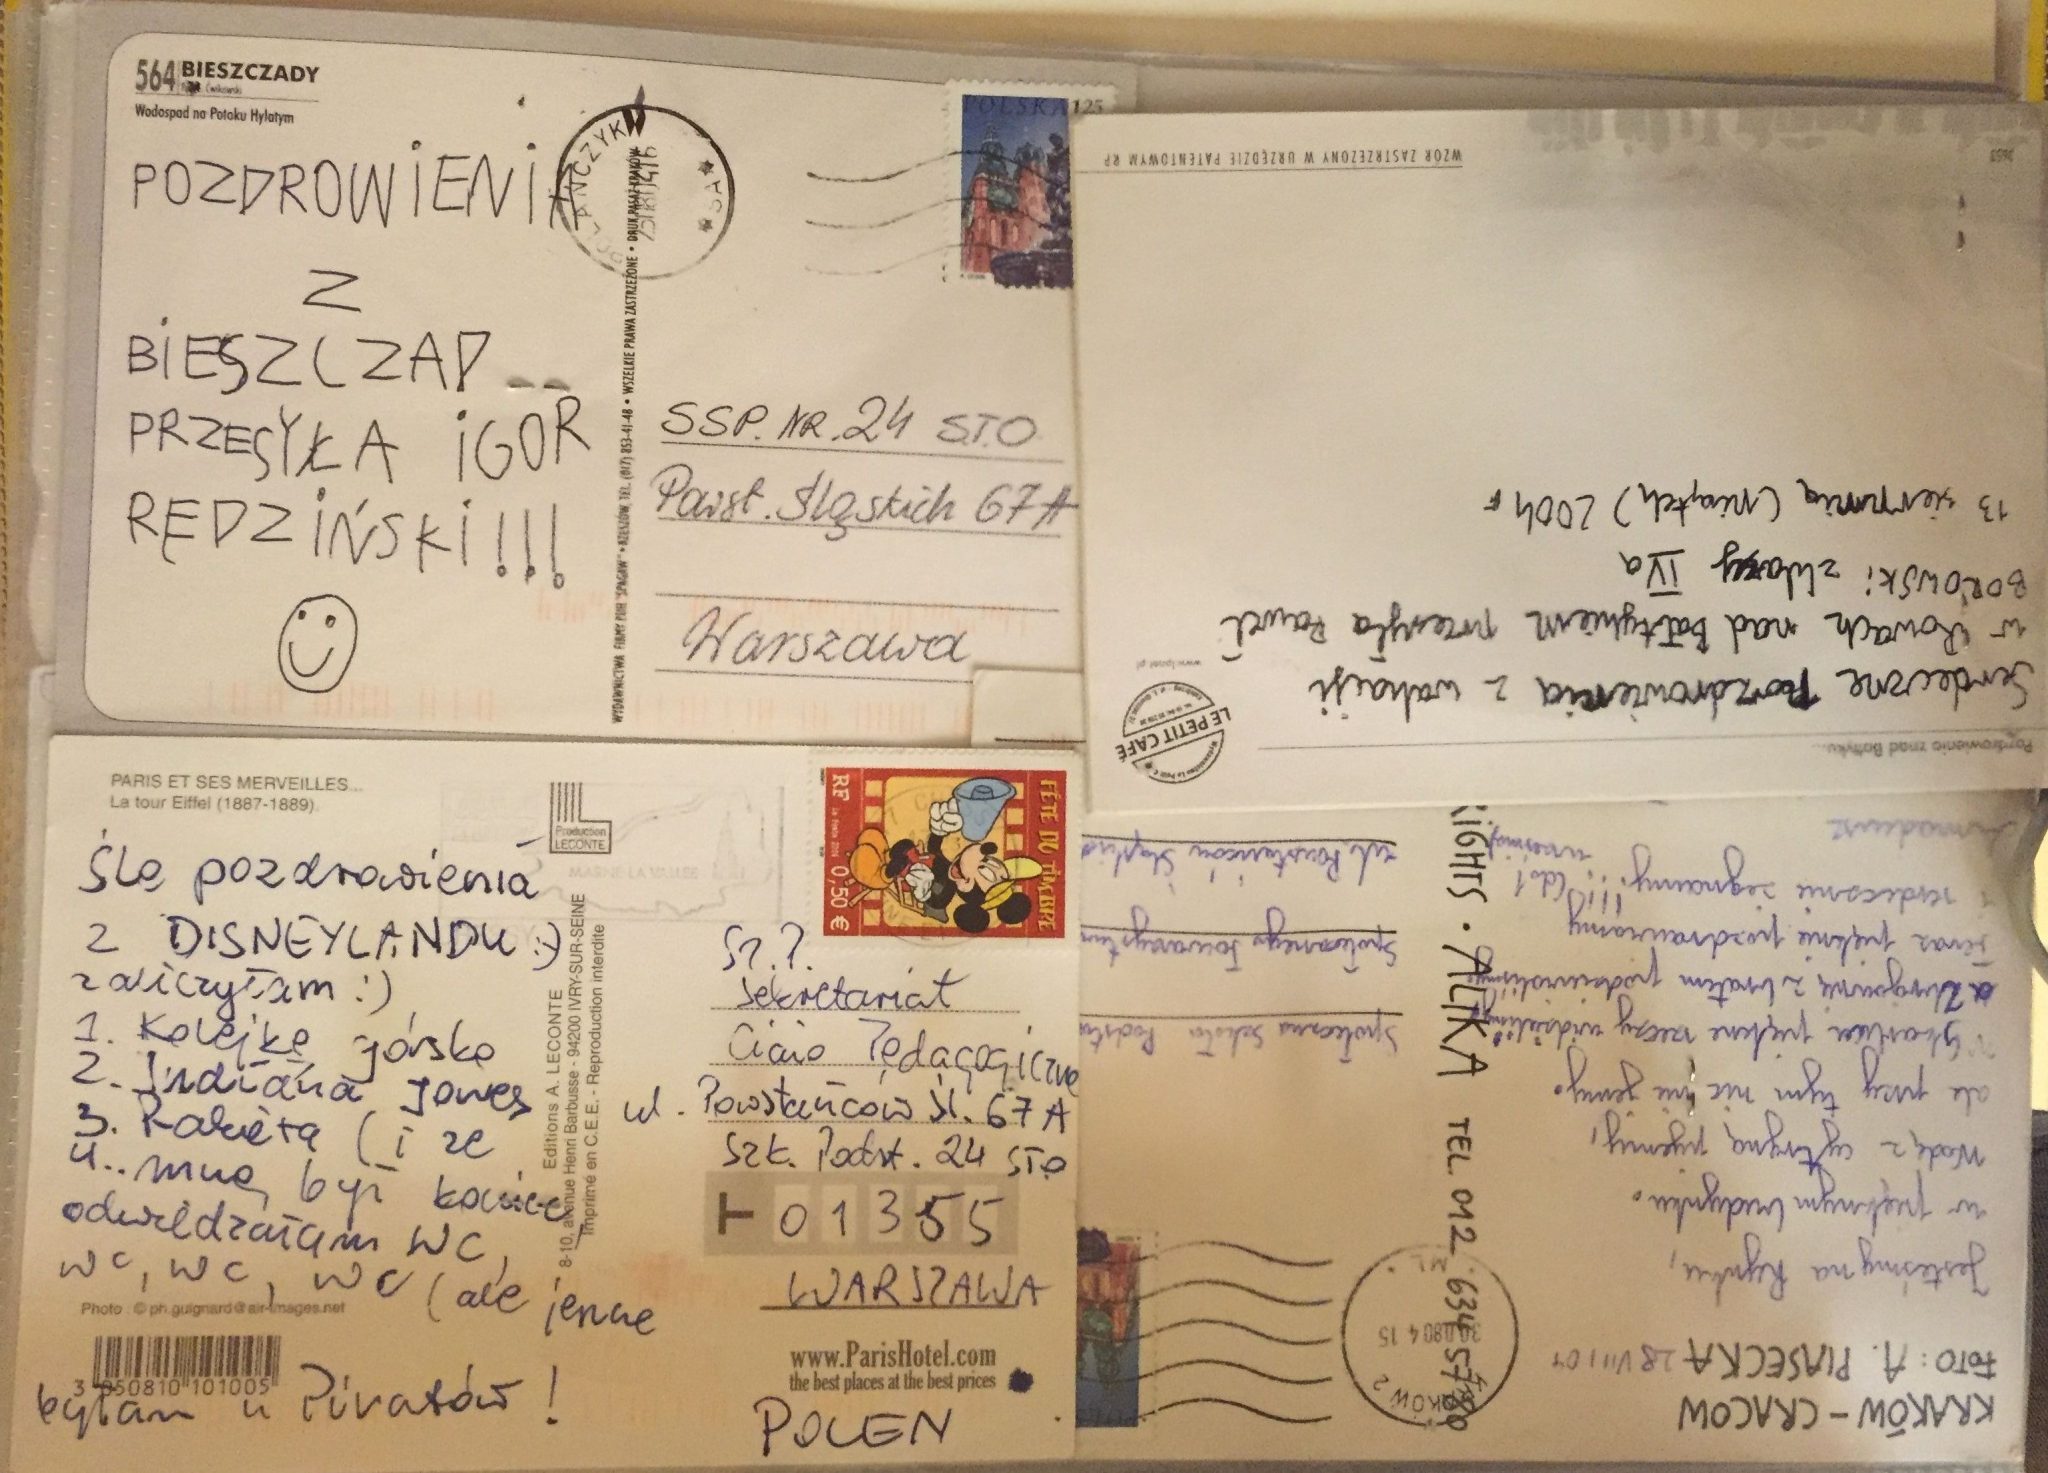 564 BIESZCZADY
Wodospad na Potoku Hylatym
POZDROWIENIA
Z
BIESZCZAD
PRZESYŁA IGOR
RĘDZIŃSKI!!!
WYDAWNICTWA FIRMY PUH "SPAGAW" • RZESZÓW, TEL. (017) 853-41-48 • WSZELKIE PRAWA ZASTRZEŻONE • DRUK PASAŻ KRAKÓW
POLSKA 125
SSP. NR. 24 STO
Powst. Śląskich 67A
Warszawa
PARIS ET SES MERVEILLES...
La tour Eiffel (1887-1889).
Ślę pozdrowienia
z DISNEYLANDU :)
zaliczyłam :)
1. Kolejkę górską
2. Indiana Jones
3. Rakietą (i ze
4.. mną być koniec
odwiedzałam WC,
WC, WC, WC (ale jeszcze
byłam u Piratów!
Photo : © ph.guignard@air-images.net
3 050810 101005
Production
LECONTE
MARNE LA VALLEE
Editions A. LECONTE
8-10, avenue Henri Barbusse - 94200 IVRY-SUR-SEINE
Imprimé en C.E.E. - Reproduction interdite
FÊTE DU TIMBRE
RF
0,50 €
Sz.P.
Sekretariat
Ciało Pedagogiczne
ul. Powstańców Śl. 67A
Szk. Podst. 24 STO
01355
WARSZAWA
www.ParisHotel.com
the best places at the best prices
POLEN
Pozdrowienia znad Bałtyku...
Serdeczne Pozdrowienia z wakacji
w Rowach nad Bałtykiem przesyła Paweł
BOROWSKI z klasy IVa
13 sierpnia (piątek) 2004 r
LE PETIT CAFE
www.lpost.pl
WZÓR ZASTRZEŻONY W URZĘDZIE PATENTOWYM RP
KRAKÓW – CRACOW
FOTO: A. PIASECKA 28 VIII 04
Jesteśmy na Rynku,
w pięknym budynku.
Wodę z cytryną pijemy,
ale przy tym nic nie jemy.
piękne rzeczy widzieliśmy
z bratem podziwialiśmy
Teraz pięknie pozdrawiamy
i serdecznie żegnamy!!!
RIGHTS • ALIKA TEL. 012 634 57 80
Społeczna Szkoła Podsta
Społecznego Towarzystwa
ul. Powstańców Śląskich